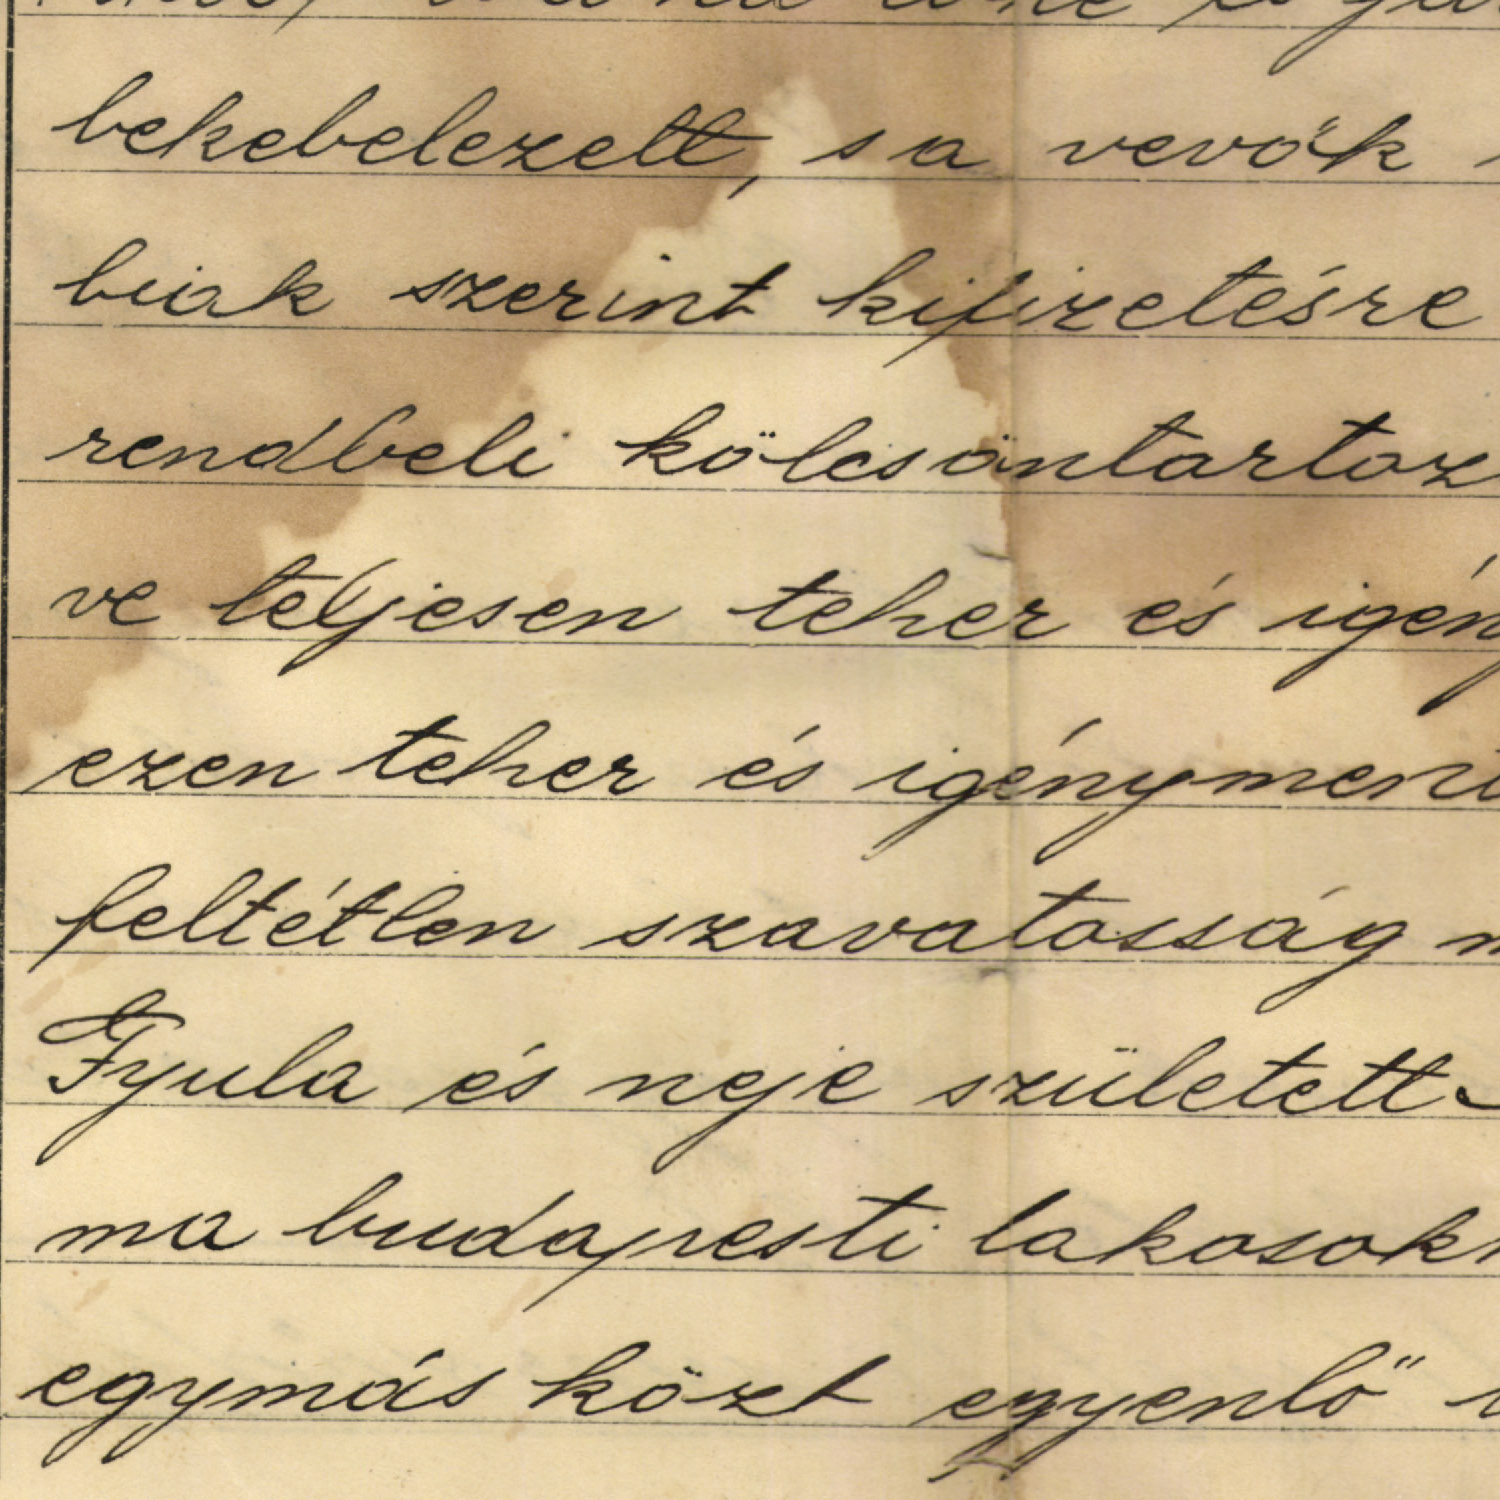 bekebelezett, s a vevők
biak szerint kifizetésre
rendbeli kölcsöntartoz
ve teljesen teher és igény
ezen teher és igényment
feltétlen szavatosság m
Gyula és neje született
ma budapesti lakosokn
egymás közt egyenlő